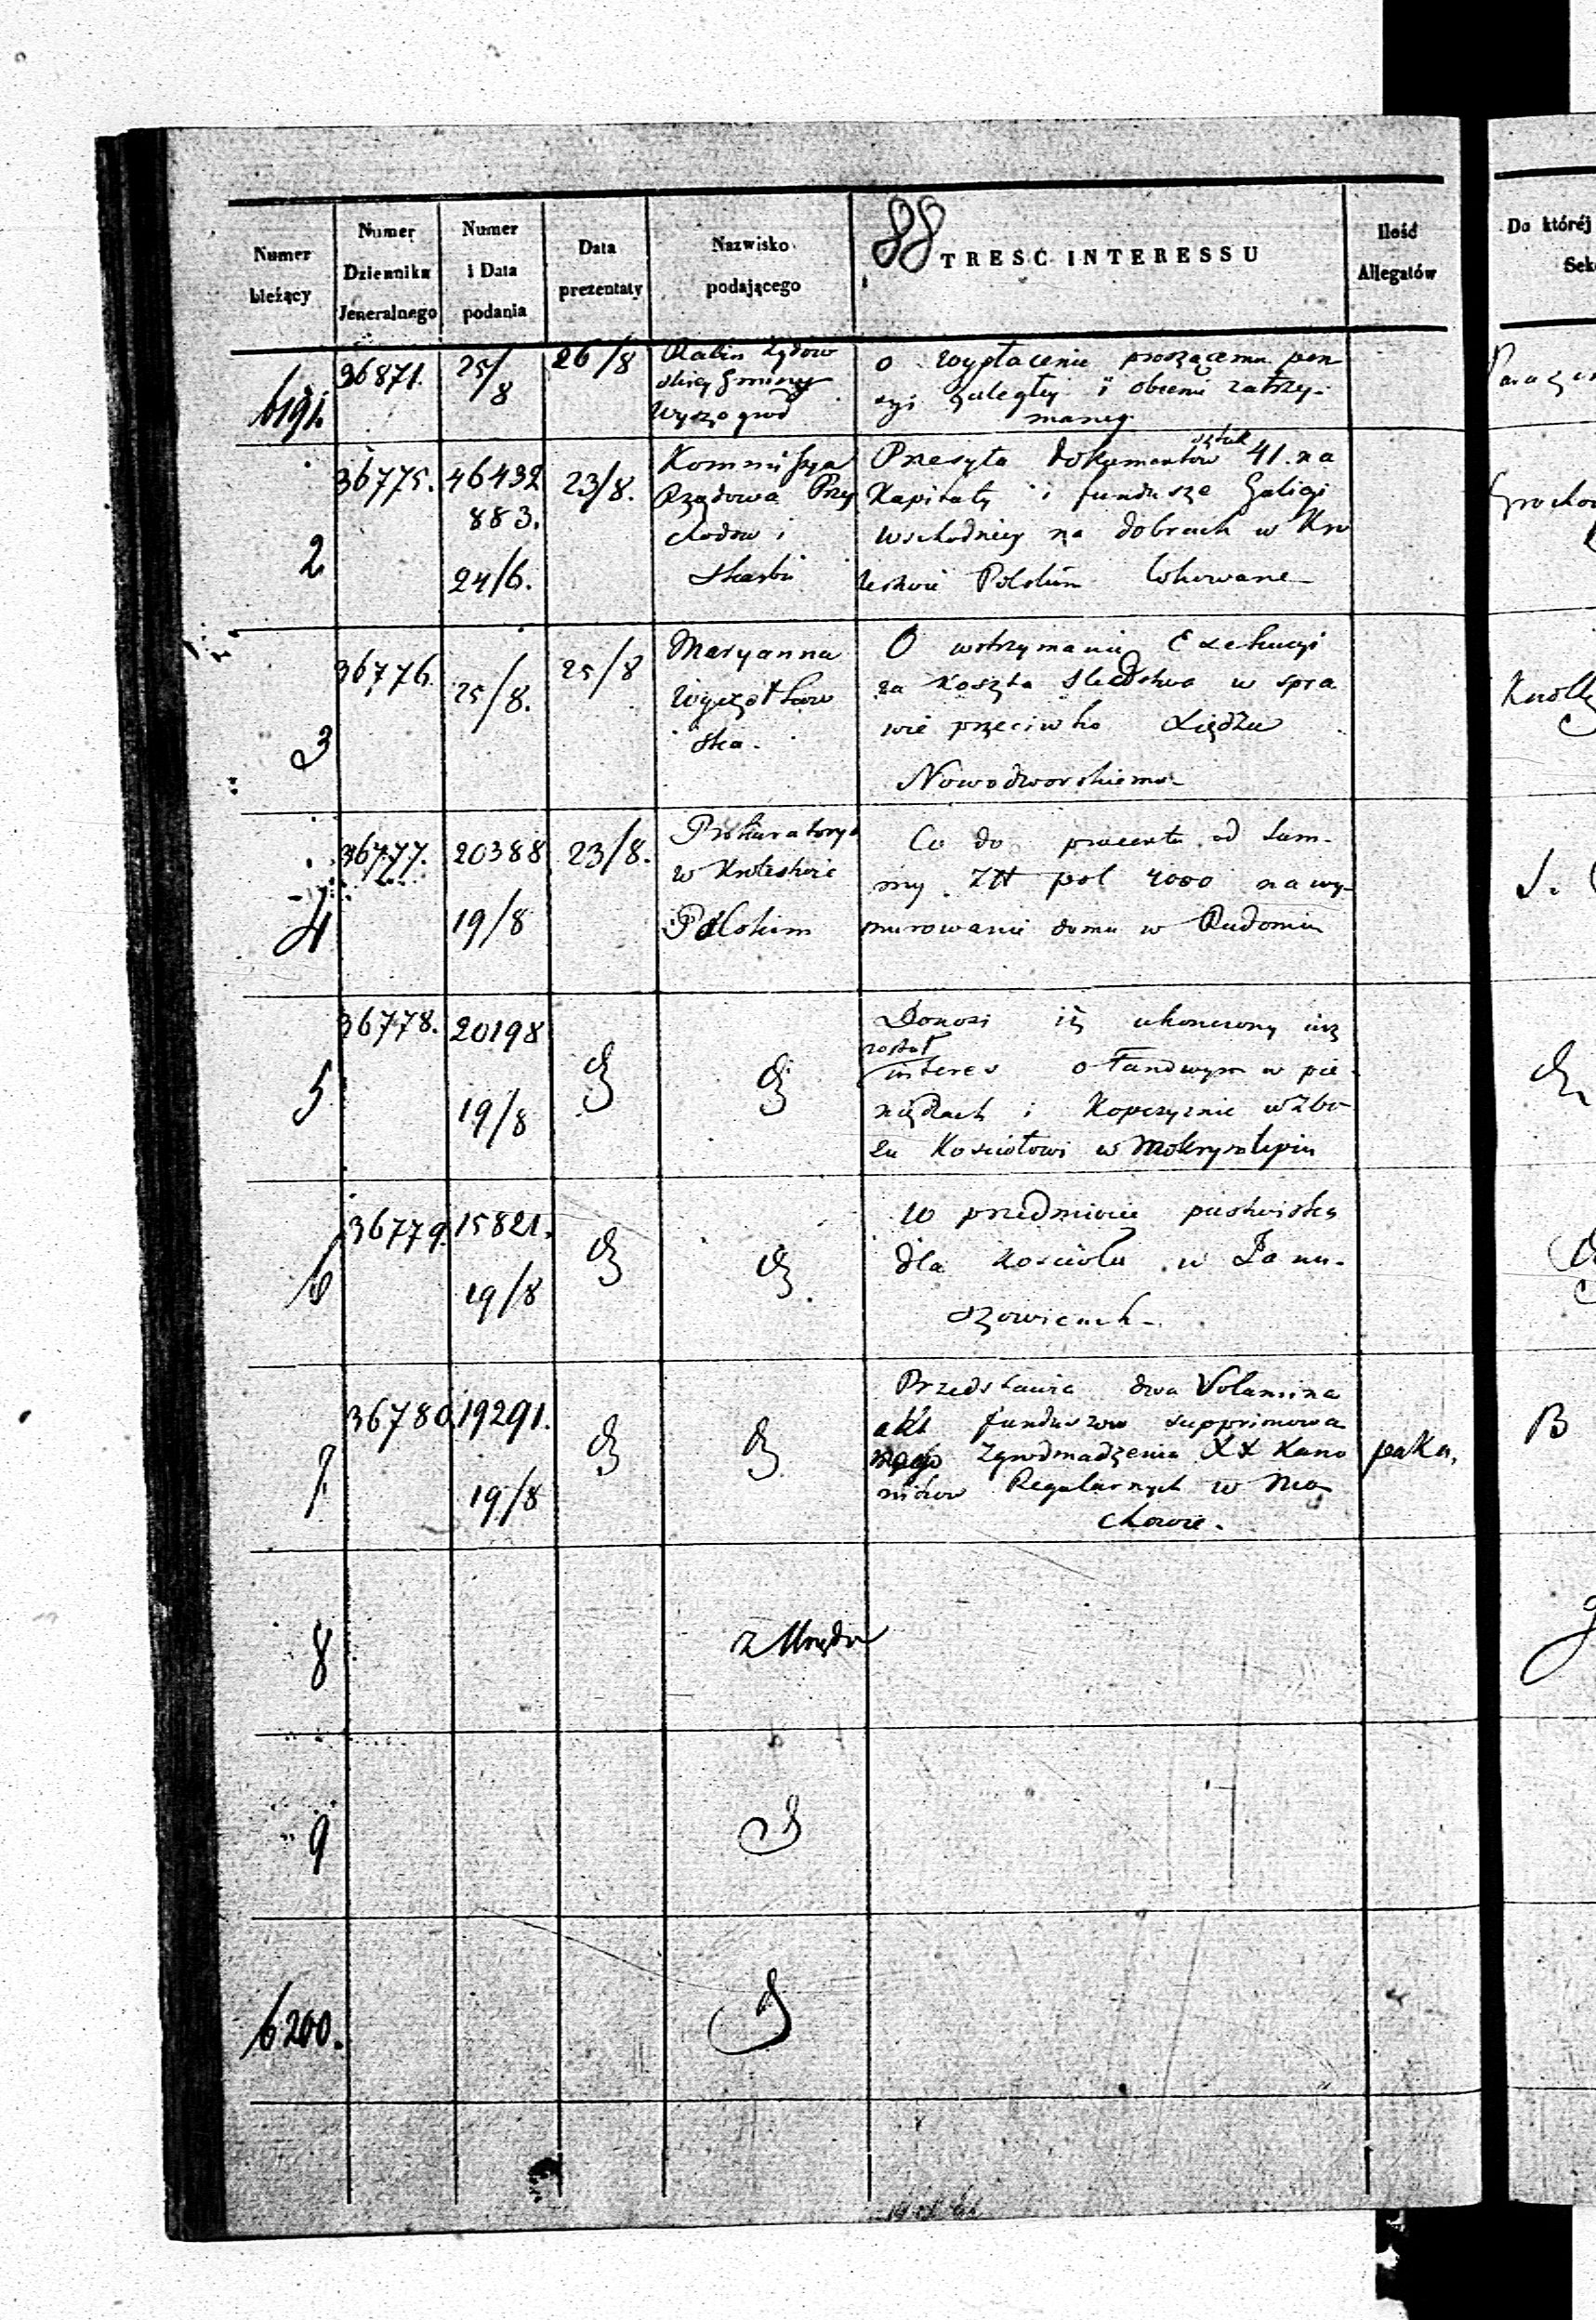 88
Numer bieżący
Numer Dziennika Jeneralnego
Numer i Data podania
Data prezentaty
Nazwisko podającego
TRESC INTERESSU
Ilość Allegatów
Do której
6191.
36871.
25/8
26/8
Rabin Żydow
skiej Gminy
Wyszogrod
o wypłacenie proszącemu pen
syi zaległej i obecnie zatrzy-
maney
2
36775.
46432
883.
24/6.
23/8.
Kommissya
Rządowa Przy
chodow i
Skarbu
Przesyła dokumentow sztuk 41. na
Kapitały i fundusze Galicyi
wschodniey na dobrach w Kro
lestwie Polskim lokowane
3
36776
25/8.
25/8
Maryanna
ska.
O wstrzymanie Exekucyi
za koszta sledstwa w spra
wie przeciwko Xiędzu
Nowodworskiemu
4
36777.
20388
19/8
23/8.
Prokuratorya
w Krolestwie
Polskim
Co do procentu od Sum-
my Złt pol 4000 na wy-
murowanie domu w Radomiu
5
36778.
20198
19/8
Donosi iż ukonczony iuż
został
interes o w pie
niądzach i Kopczyznie w Zbo
żu Kosciołowi w Mokrymlipiu
6
36779.
15821.
19/8
W przedmiocie pastwiska
dla kościoła w Janu-
szowicach
7
36780
19291.
19/8
Przedstawia dwa Volumina
akt funduszow supprimowa
nego Zgromadzenia XX Kano
ników Regularnych w Mie
chowie.
paka,
B
8
z Urzędu
9
6200.